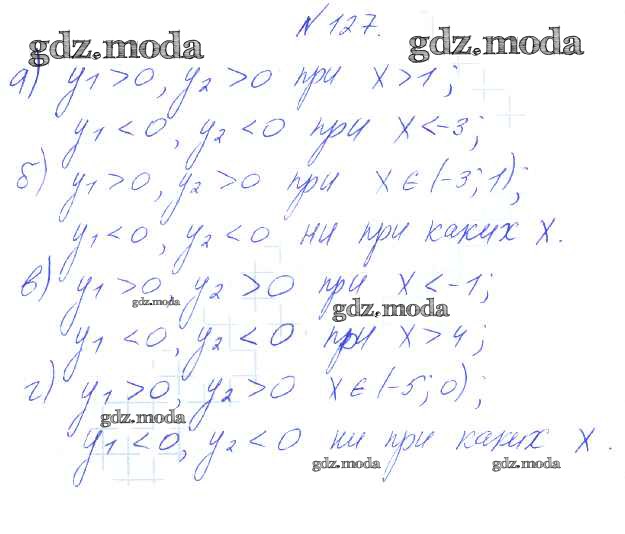 №127.
gdz.moda gdz.moda
а) y₁ > 0, y₂ > 0 при x > 1;
y₁ < 0, y₂ < 0 при x < -3;
б) y₁ > 0, y₂ > 0 при x ∈ (-3; 1);
y₁ < 0, y₂ < 0 ни при каких x.
в) y₁ > 0, y₂ > 0 при x < -1;
gdz.moda gdz.moda
y₁ < 0, y₂ < 0 при x > 4;
г) y₁ > 0, y₂ > 0 x ∈ (-5; 0);
gdz.moda
y₁ < 0, y₂ < 0 ни при каких x.
gdz.moda gdz.moda